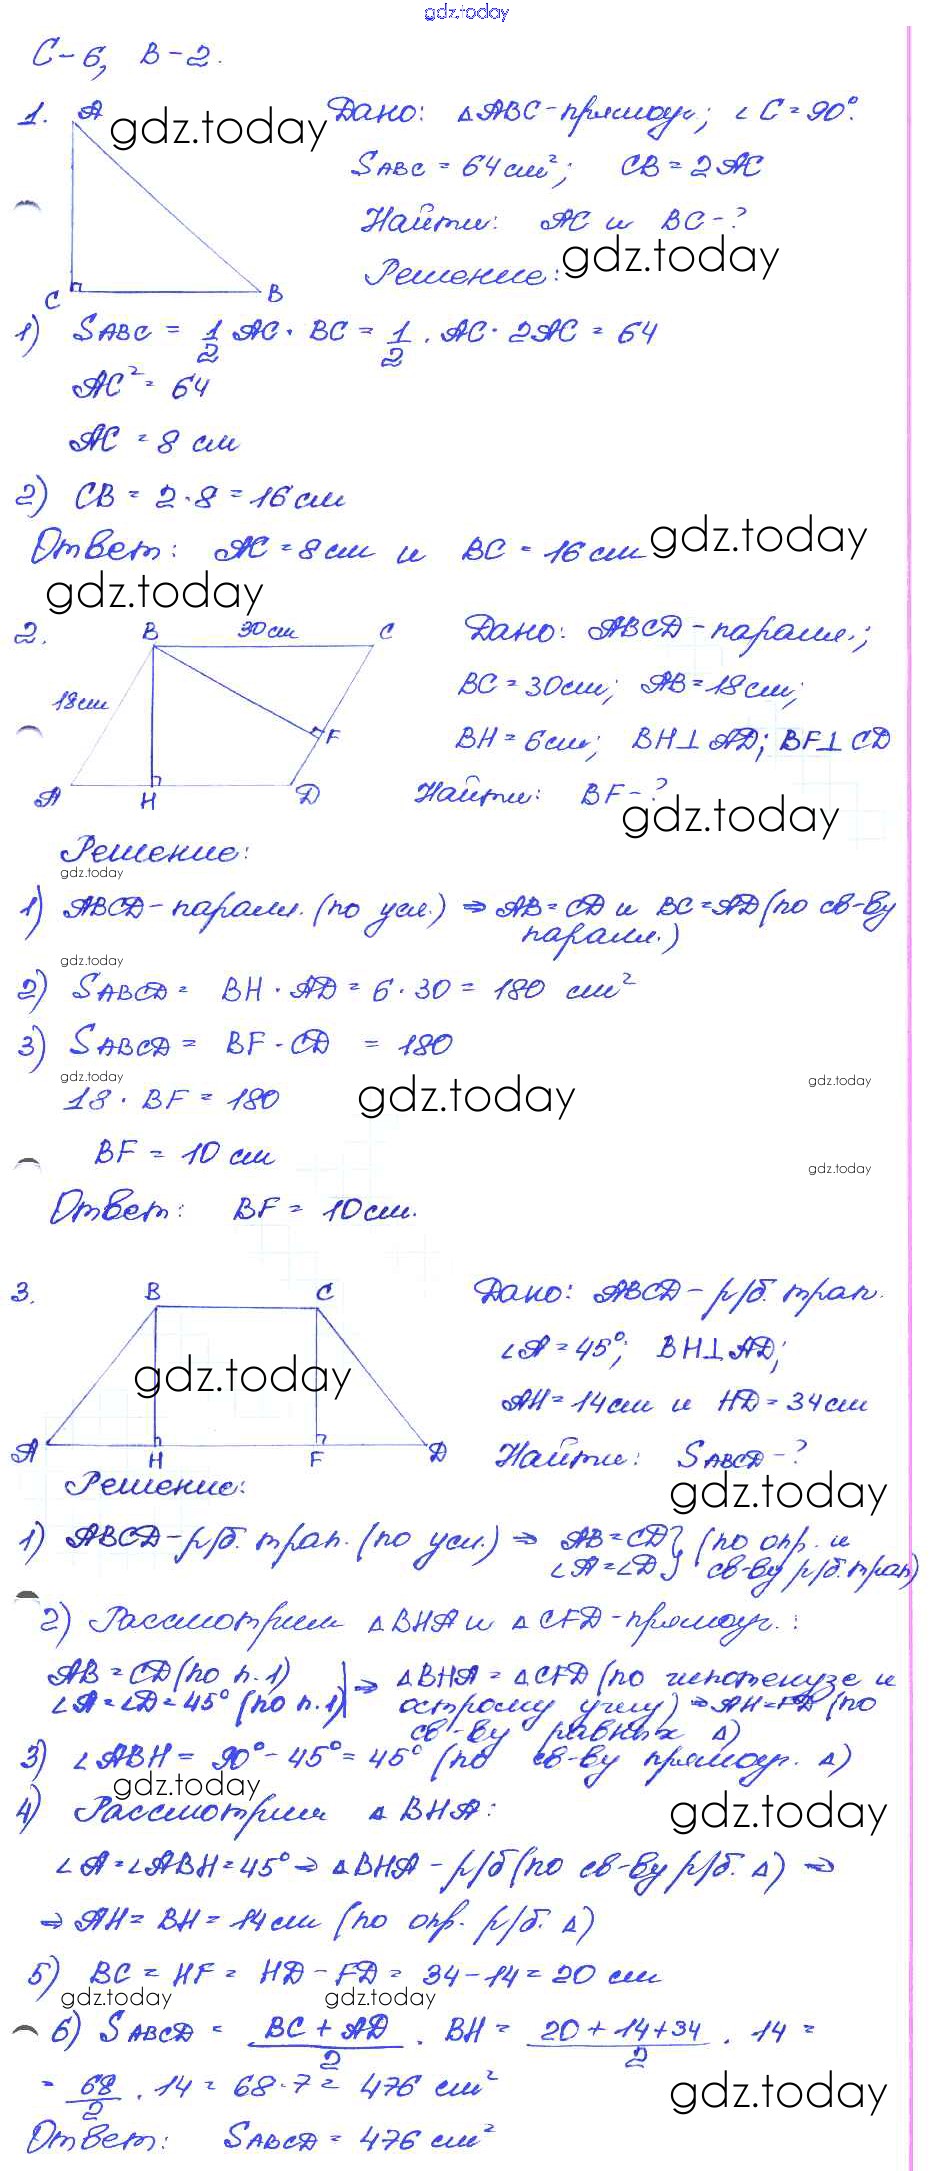 gdz.today
С-6, В-2.
1. A gdz.today Дано: △ABC-прямоуг.; ∠C=90°.
SABC = 64 см²; CB=2AC
Найти: AC и BC-?
Решение: gdz.today
C B
1) SABC = 1/2 AC · BC = 1/2 · AC · 2AC = 64
AC² = 64
AC = 8 см
2) CB = 2·8 = 16 см
Ответ: AC = 8 см и BC = 16 см gdz.today
gdz.today
2. B 30 см C Дано: ABCD-паралл.;
18 см BC = 30 см; AB = 18 см;
F BH = 6 см; BH⊥AD; BF⊥CD
A H D Найти: BF-?
gdz.today
Решение:
gdz.today
1) ABCD-паралл. (по усл.) ⇒ AB=CD и BC=AD (по св-ву
паралл.)
gdz.today
2) SABCD = BH · AD = 6 · 30 = 180 см²
3) SABCD = BF · CD = 180
gdz.today gdz.today gdz.today
18 · BF = 180
BF = 10 см
gdz.today
Ответ: BF = 10 см.
3. B C Дано: ABCD-р/б. трап.
∠A = 45°; BH⊥AD;
gdz.today
AH = 14 см и HD = 34 см
A H F D Найти: SABCD-?
Решение: gdz.today
1) ABCD-р/б. трап. (по усл.) ⇒ AB=CD } (по опр. и
∠A=∠D } св-ву р/б. трап)
2) Рассмотрим △BHA и △CFD-прямоуг.:
AB = CD (по п.1) | ⇒ △BHA = △CFD (по гипотенузе и
∠A = ∠D = 45° (по п.1) | острому углу) ⇒ AH=FD (по
св-ву равных △)
3) ∠ABH = 90° - 45° = 45° (по св-ву прямоуг. △)
gdz.today
4) Рассмотрим △BHA: gdz.today
∠A = ∠ABH = 45° ⇒ △BHA - р/б (по св-ву р/б. △) ⇒
⇒ AH = BH = 14 см (по опр. р/б. △)
5) BC = HF = HD - FD = 34 - 14 = 20 см
gdz.today gdz.today
6) SABCD = BC + AD/2 · BH = 20 + 14 + 34/2 · 14 =
= 68/2 · 14 = 68 · 7 = 476 см² gdz.today
Ответ: SABCD = 476 см²